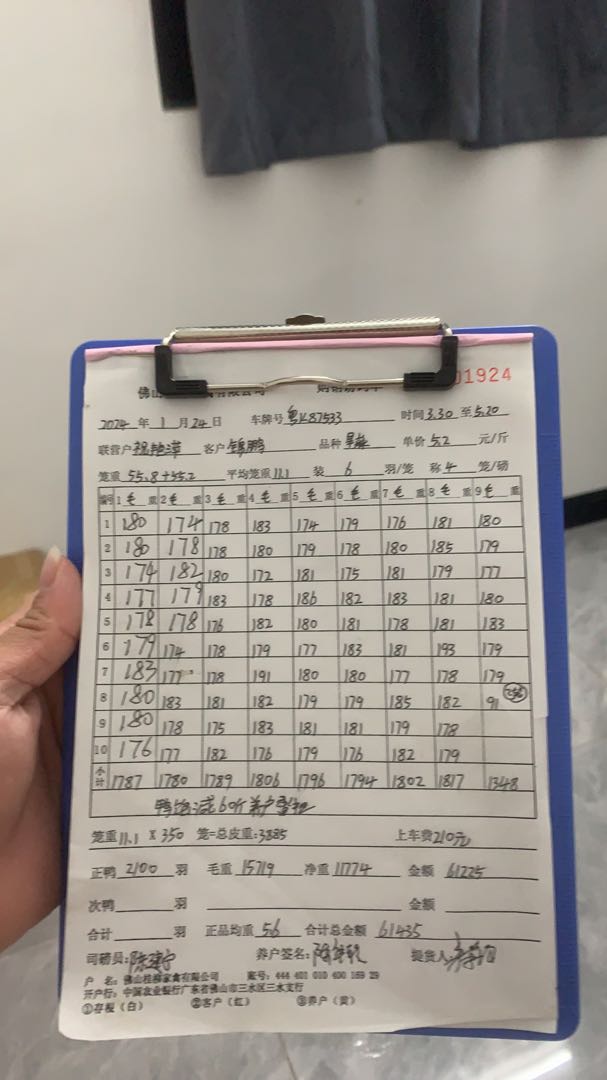 01924
2024年1月24日 车牌号粤K87533 时间3.30至5.20
联营户 客户锦鹏 品种 单价5.2元/斤
笼重55.8+55.2 平均笼重11.1 装6羽/笼 称4笼/磅
编号 1毛重 2毛重 3毛重 4毛重 5毛重 6毛重 7毛重 8毛重 9毛重
1 180 174 178 183 174 179 176 181 180
2 180 178 178 180 179 178 180 185 179
3 174 182 180 172 181 175 181 179 177
4 177 179 183 178 186 182 183 181 180
5 178 178 176 182 180 181 178 181 183
6 179 174 178 179 177 183 181 193 179
7 183 177 178 191 180 180 177 178 179
8 180 183 181 182 179 179 185 182 91
9 180 178 175 183 181 181 179 178
10 176 177 182 176 179 176 182 179
小计 1787 1780 1789 1806 1796 1794 1802 1817 1348
减60斤
笼重11.1×350笼=总皮重:3885 上车费210元
正鸭2100羽 毛重15719 净重11774 金额61225
次鸭 羽 金额
合计 羽 正品均重5.6 合计总金额61435
司磅员: 养户签名: 提货人
户 名:佛山桂柳家禽有限公司 账号:444 401 010 400 169 29
开户行:中国农业银行广东省佛山市三水区三水支行
①存根(白) ②客户(红) ③养户(黄)